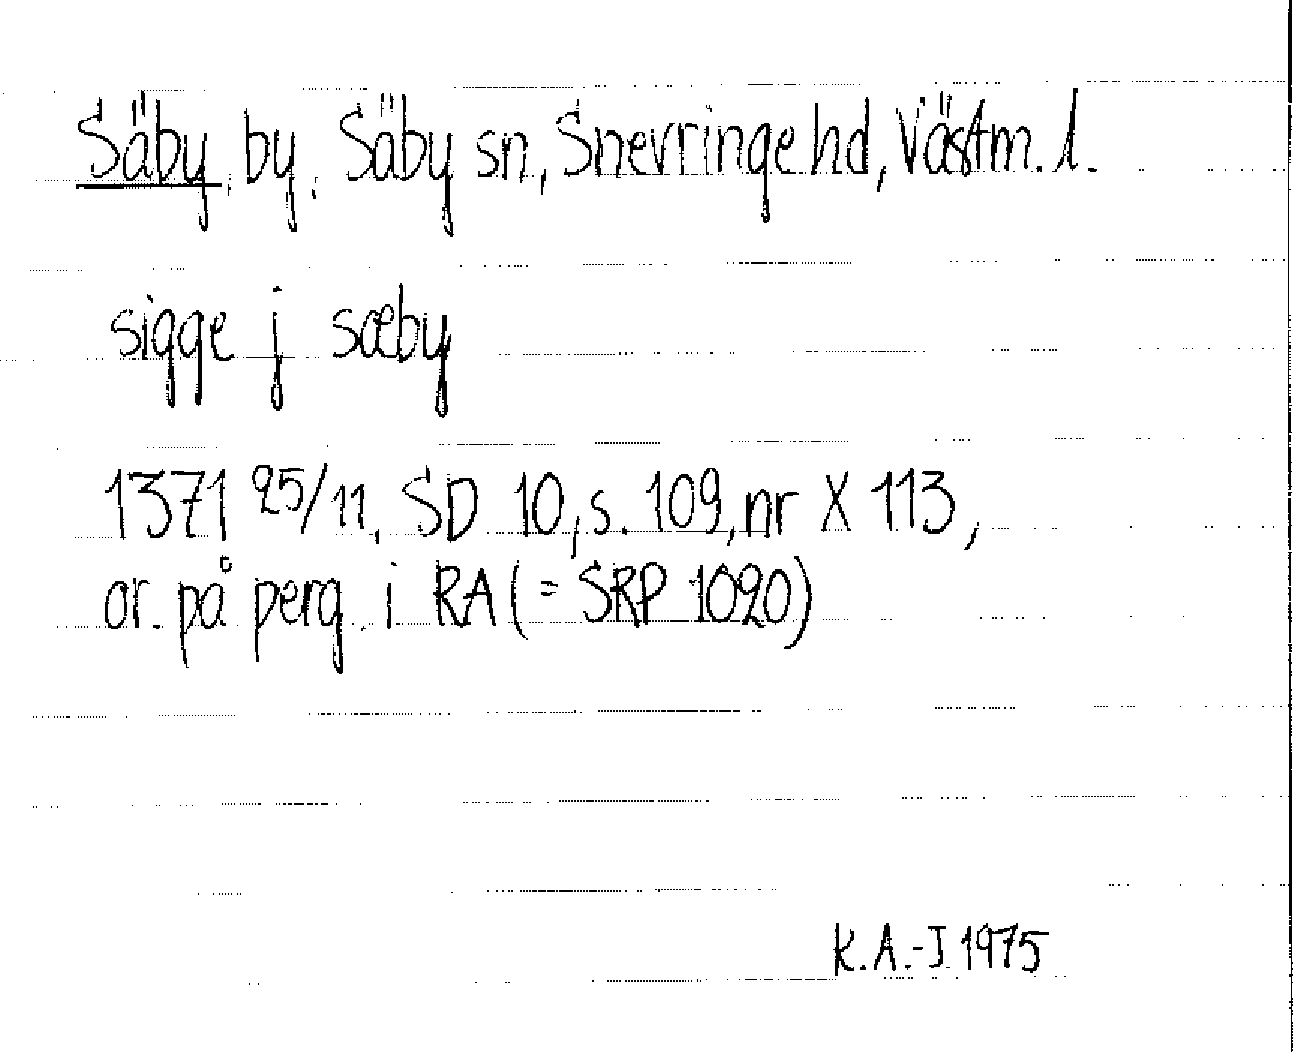 Säby, by, Säby sn, Snevringe hd, Västm. l.
sigge j sæby
1371 25/11, SD 10, s. 109, nr X 113,
or. på perg. i RA (= SRP 1020)
K.A.-J 1975